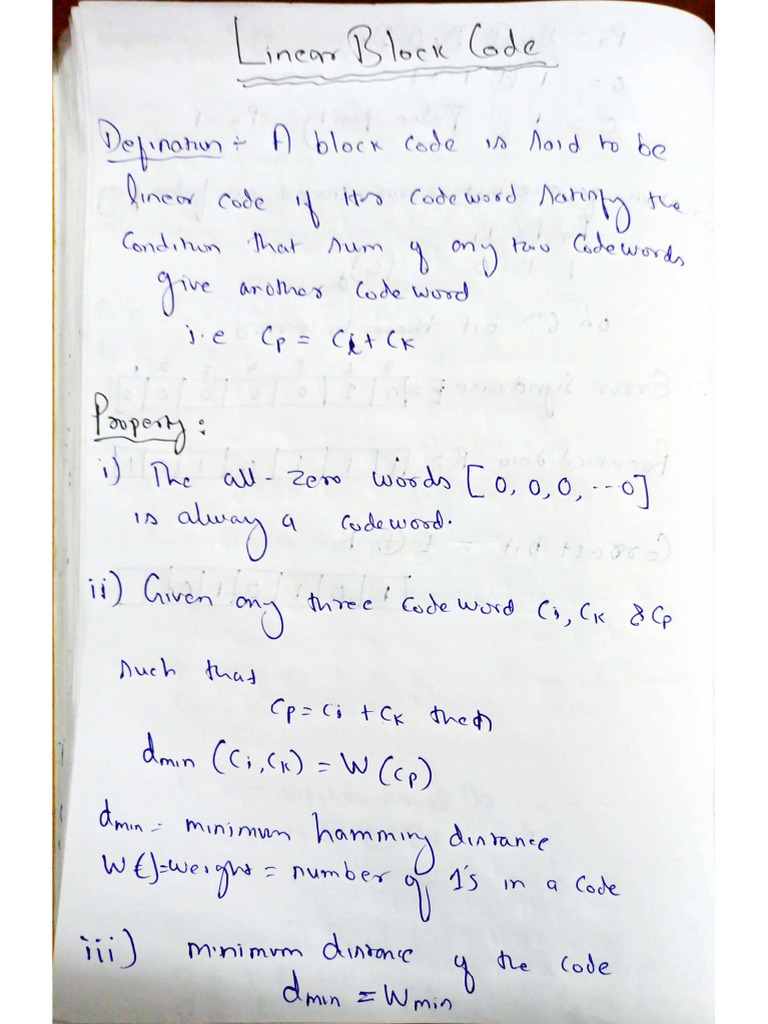 Linear Block Code
Defination ÷ A block code is said to be
linear code if its codeword satisfy the
Condition that sum of any two Codewords
give another codeword
i.e Cp = Ci + Ck
Property:
i) The all-zero words [0, 0, 0, ...0]
is alway a codeword.
ii) Given any three codeword Ci, Ck & Cp
such that
Cp = Ci + Ck then
dmin (Ci, Ck) = W (Cp)
dmin = minimum hamming distance
W()=weight = number of 1's in a code
iii) minimum distance of the code
dmin = Wmin